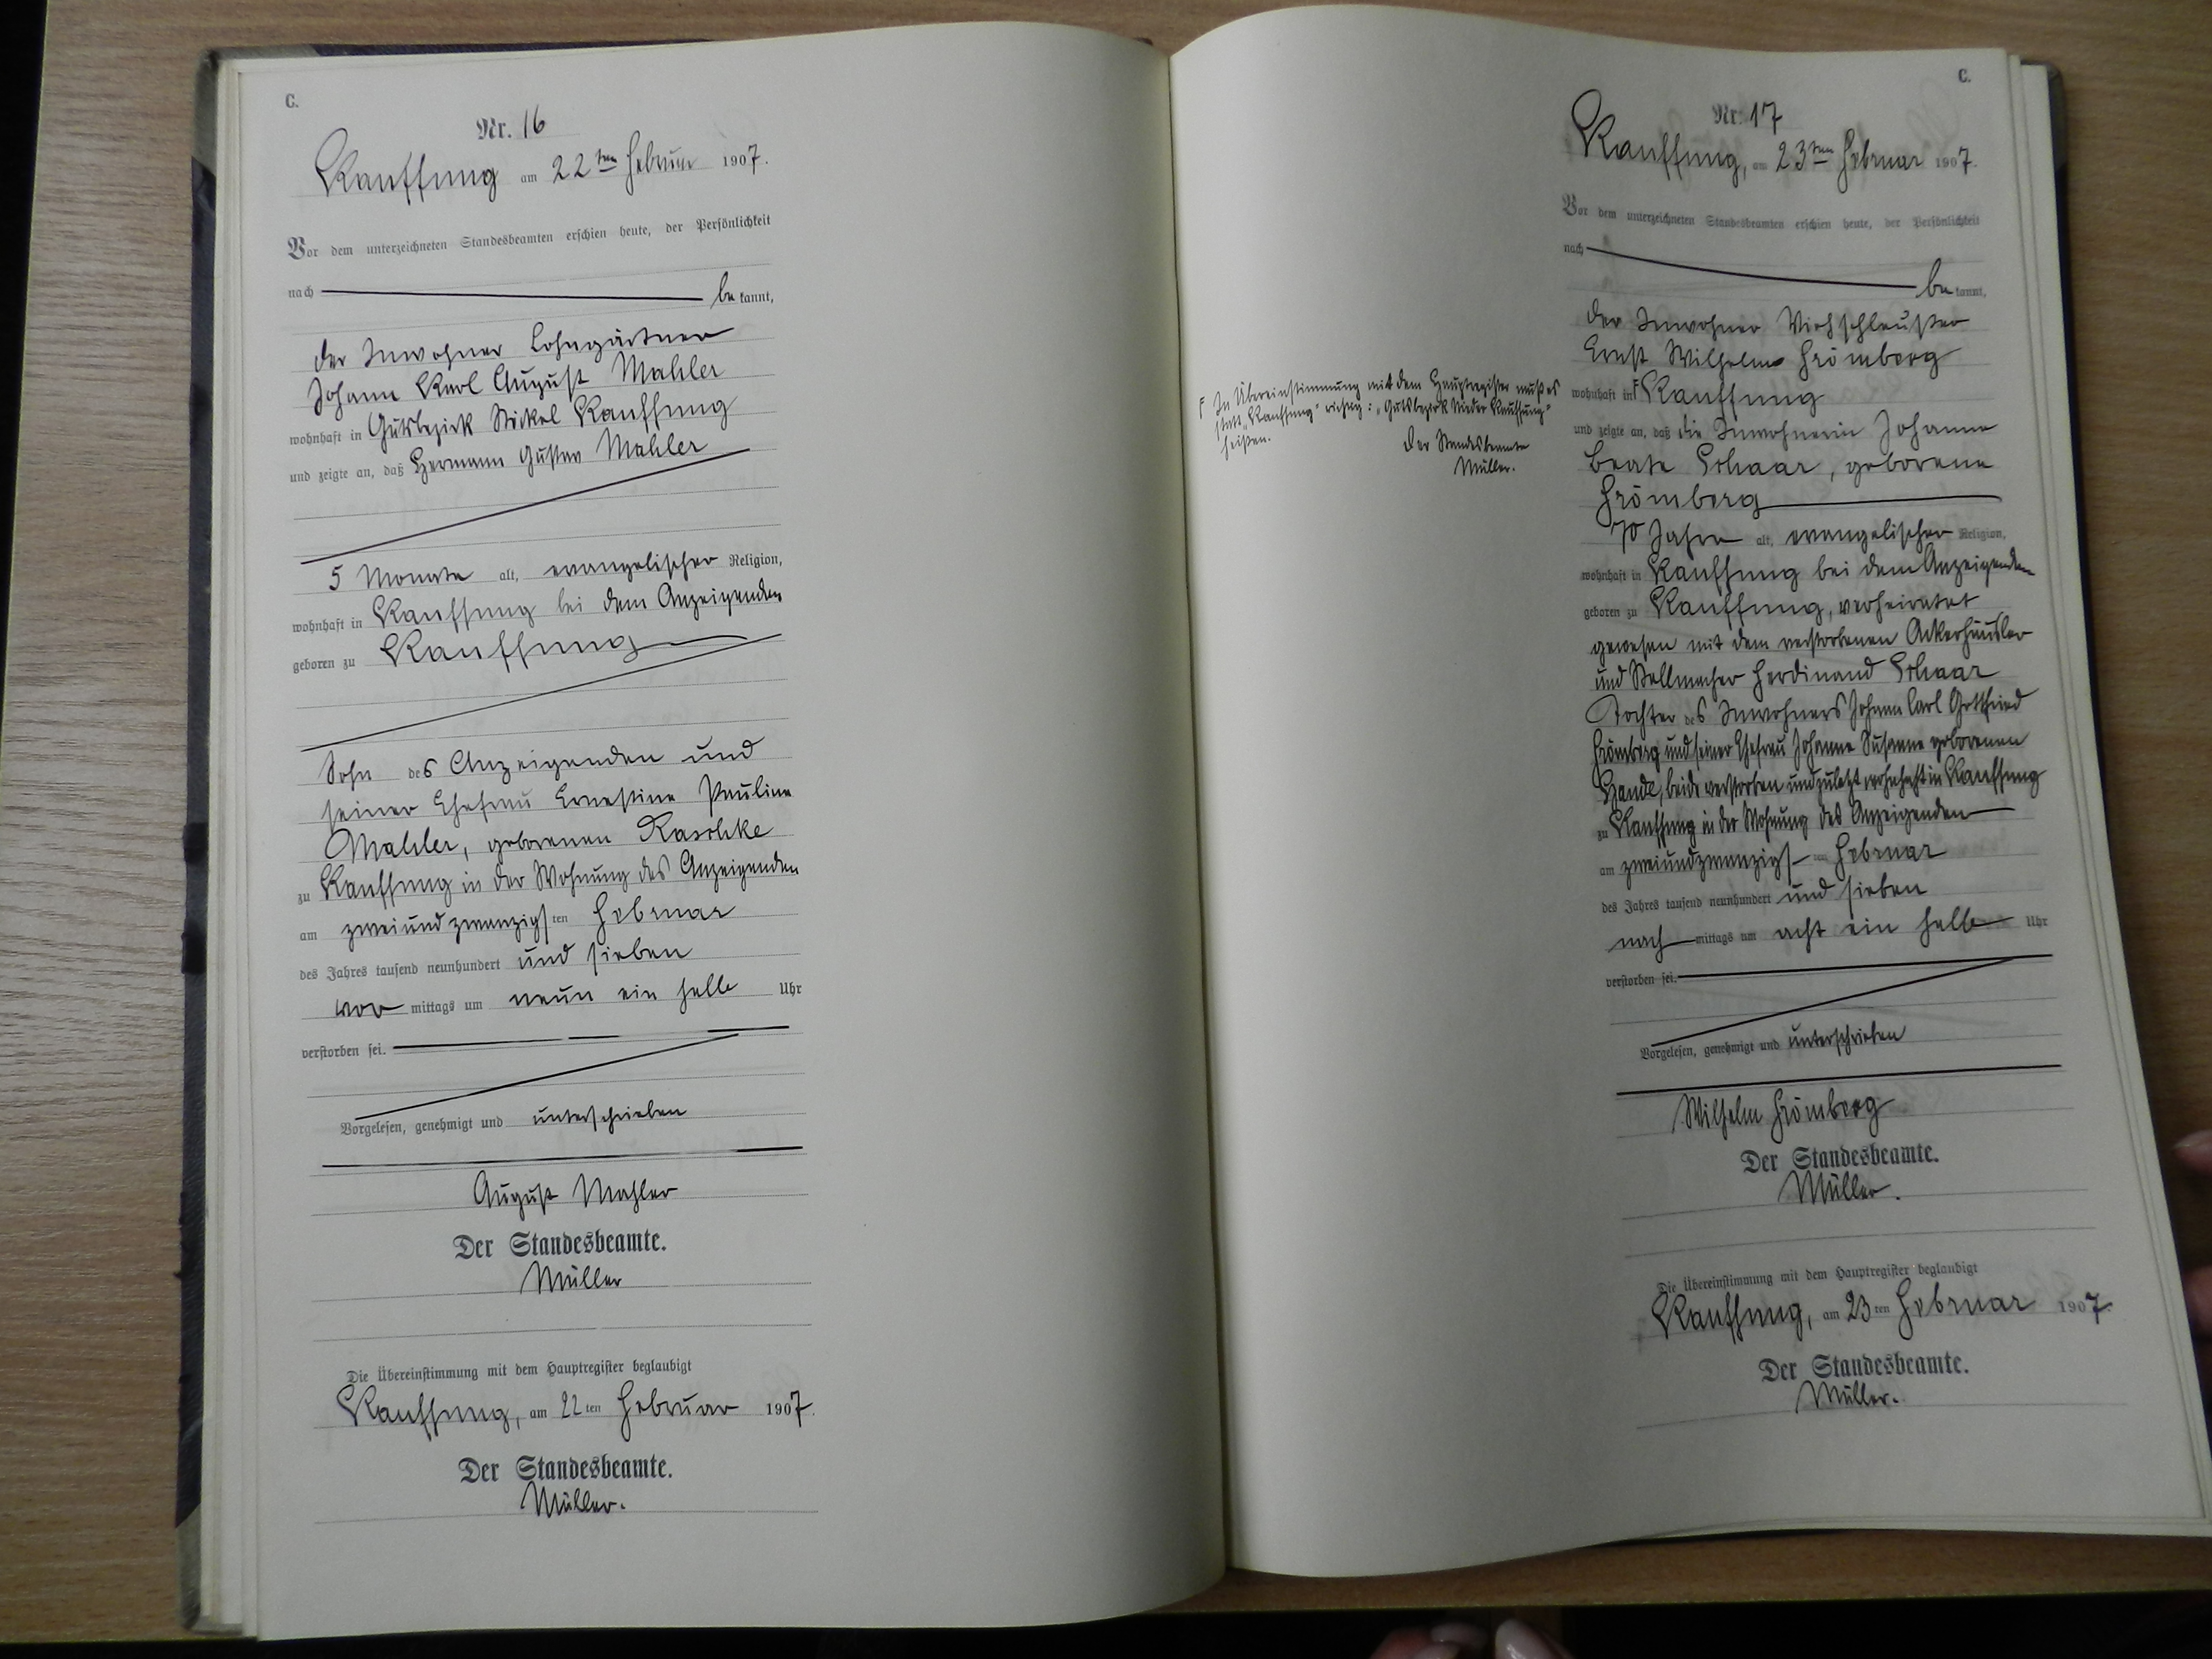 C.
Nr. 16
Kauffung am 22ten Februar 1907.
Vor dem unterzeichneten Standesbeamten erschien heute, der Persönlichkeit
nach be kannt,
der Inwohner Lohngärtner
Johann Karl August Mahler
wohnhaft in Gutsbezirk Stöckel Kauffung
und zeigte an, daß Hermann Gustav Mahler
5 Monate alt, evangelischer Religion,
wohnhaft in Kauffung bei dem Anzeigenden
geboren zu Kauffung
Sohn des Anzeigenden und
seiner Ehefrau Ernestine Pauline
Mahler, geborenen Raschke
zu Kauffung in der Wohnung des Anzeigenden
am zweiundzwanzigsten Februar
des Jahres tausend neunhundert und sieben
vor mittags um neun ein halb Uhr
verstorben sei.
Vorgelesen, genehmigt und unterschrieben
August Mahler
Der Standesbeamte.
Müller
Die Übereinstimmung mit dem Hauptregister beglaubigt
Kauffung, am 22 ten Februar 1907.
Der Standesbeamte.
Müller.
C.
Nr. 17
Kauffung, am 23ten Februar 1907.
Vor dem unterzeichneten Standesbeamten erschien heute, der Persönlichkeit
nach be kannt,
der Inwohner Viehschleußer
Ernst Wilhelm Frömberg
wohnhaft in Γ Kauffung
und zeigte an, daß die Inwohnerin Johanne
Beate Schaar, geborene
Frömberg
70 Jahre alt, evangelischer Religion,
wohnhaft in Kauffung bei dem Anzeigenden
geboren zu Kauffung, verheiratet
gewesen mit dem verstorbenen Ackerhäusler
und Stellmacher Ferdinand Schaar
Tochter des Inwohners Johann Carl Gottfried
Frömberg und seiner Ehefrau Johanne Susanne geborenen
beide verstorben und zuletzt wohnhaft in Kauffung
zu Kauffung in der Wohnung des Anzeigenden
am zweiundzwanzigsten Februar
des Jahres tausend neunhundert und sieben
nach mittags um acht ein halb Uhr
verstorben sei.
Vorgelesen, genehmigt und unterschrieben
Wilhelm Frömberg
Der Standesbeamte.
Müller.
Die Übereinstimmung mit dem Hauptregister beglaubigt
Kauffung, am 23 ten Februar 1907.
Der Standesbeamte.
Müller.
Γ In Übereinstimmung mit dem Hauptregister muß es
statt „Kauffung" richtig: „Gutsbezirk Nieder Kauffung"
heißen.
Der Standesbeamte
Müller.